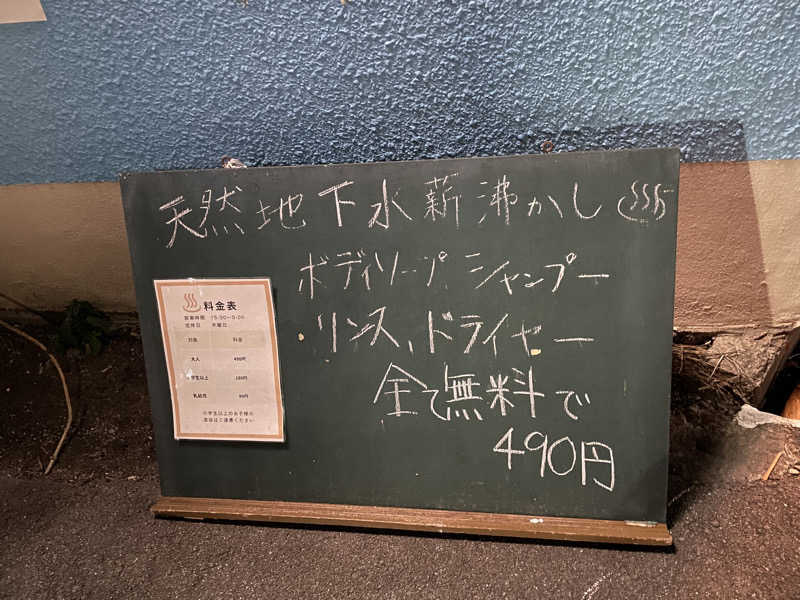 天然地下水薪沸かし♨
ボディソープ、シャンプー
リンス、ドライヤー
全て無料で
490円
♨料金表
営業時間
定休日 木曜日
対象 料金
大人 490円
小学生以上
乳幼児
小学生以上のお子様の
混浴はご遠慮ください